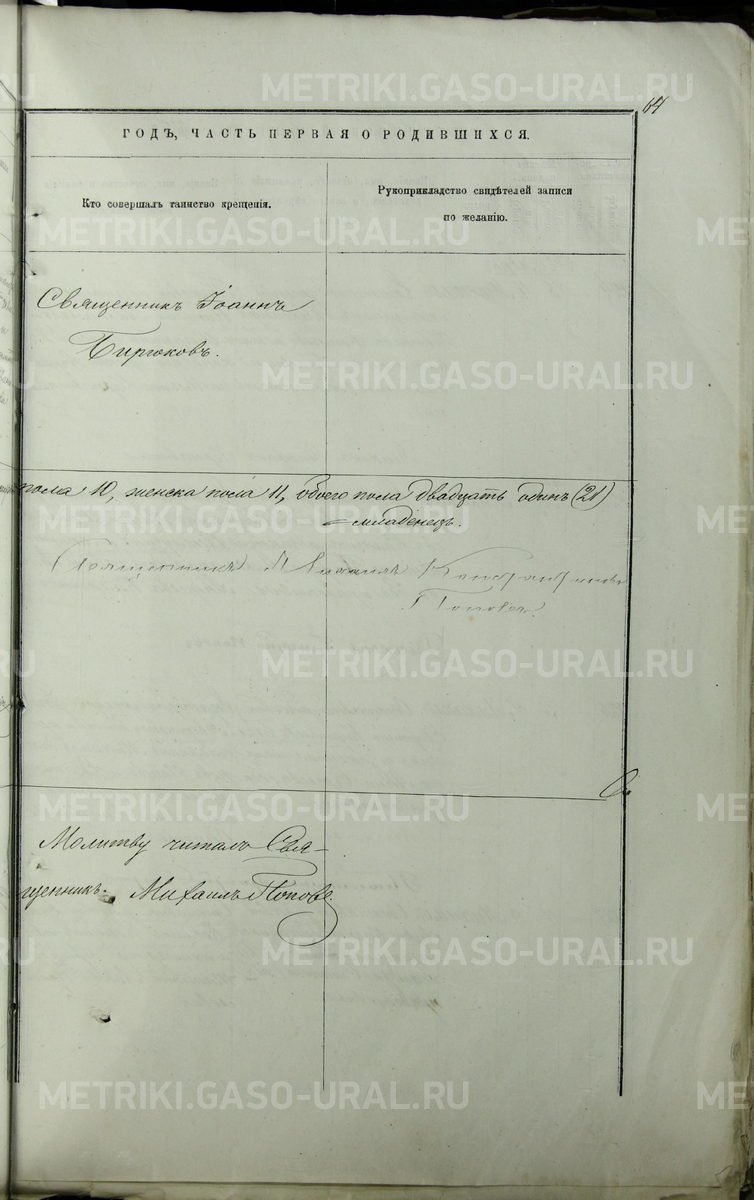 64
ГОДЪ, ЧАСТЬ ПЕРВАЯ О РОДИВШИХСЯ.
Кто совершалъ таинство крещенія.
Рукоприкладство свидѣтелей записи
по желанію.
Священникъ Іоаннъ
Бирюковъ.
пола 10, женска пола 11, обоего пола двадцать одинъ (21)
младенецъ.
Священникъ
Поповъ.
Молитву читалъ Свя-
щенникъ Михаилъ Поповъ.
METRIKI.GASO-URAL.RU
METRIKI.GASO-URAL.RU
METRIKI.GASO-URAL.RU
METRIKI.GASO-URAL.RU
METRIKI.GASO-URAL.RU
METRIKI.GASO-URAL.RU
METRIKI.GASO-URAL.RU
METRIKI.GASO-URAL.RU